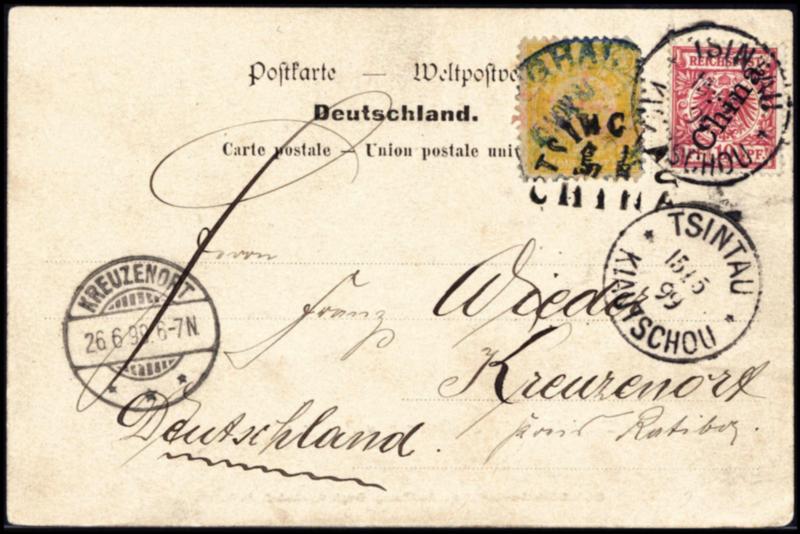 Postkarte — Weltpostve
Deutschland.
Carte postale — Union postale uni
REICHSPOST
China
TSINTAU
KIAUTSCHOU
CHINA
TSINTAU
15/5
99
KIAUTSCHOU
KREUZENORT
26.6.99.6-7N.
Herrn
Franz Wieder
Kreuzenort
Kreis Ratibor.
Deutschland.